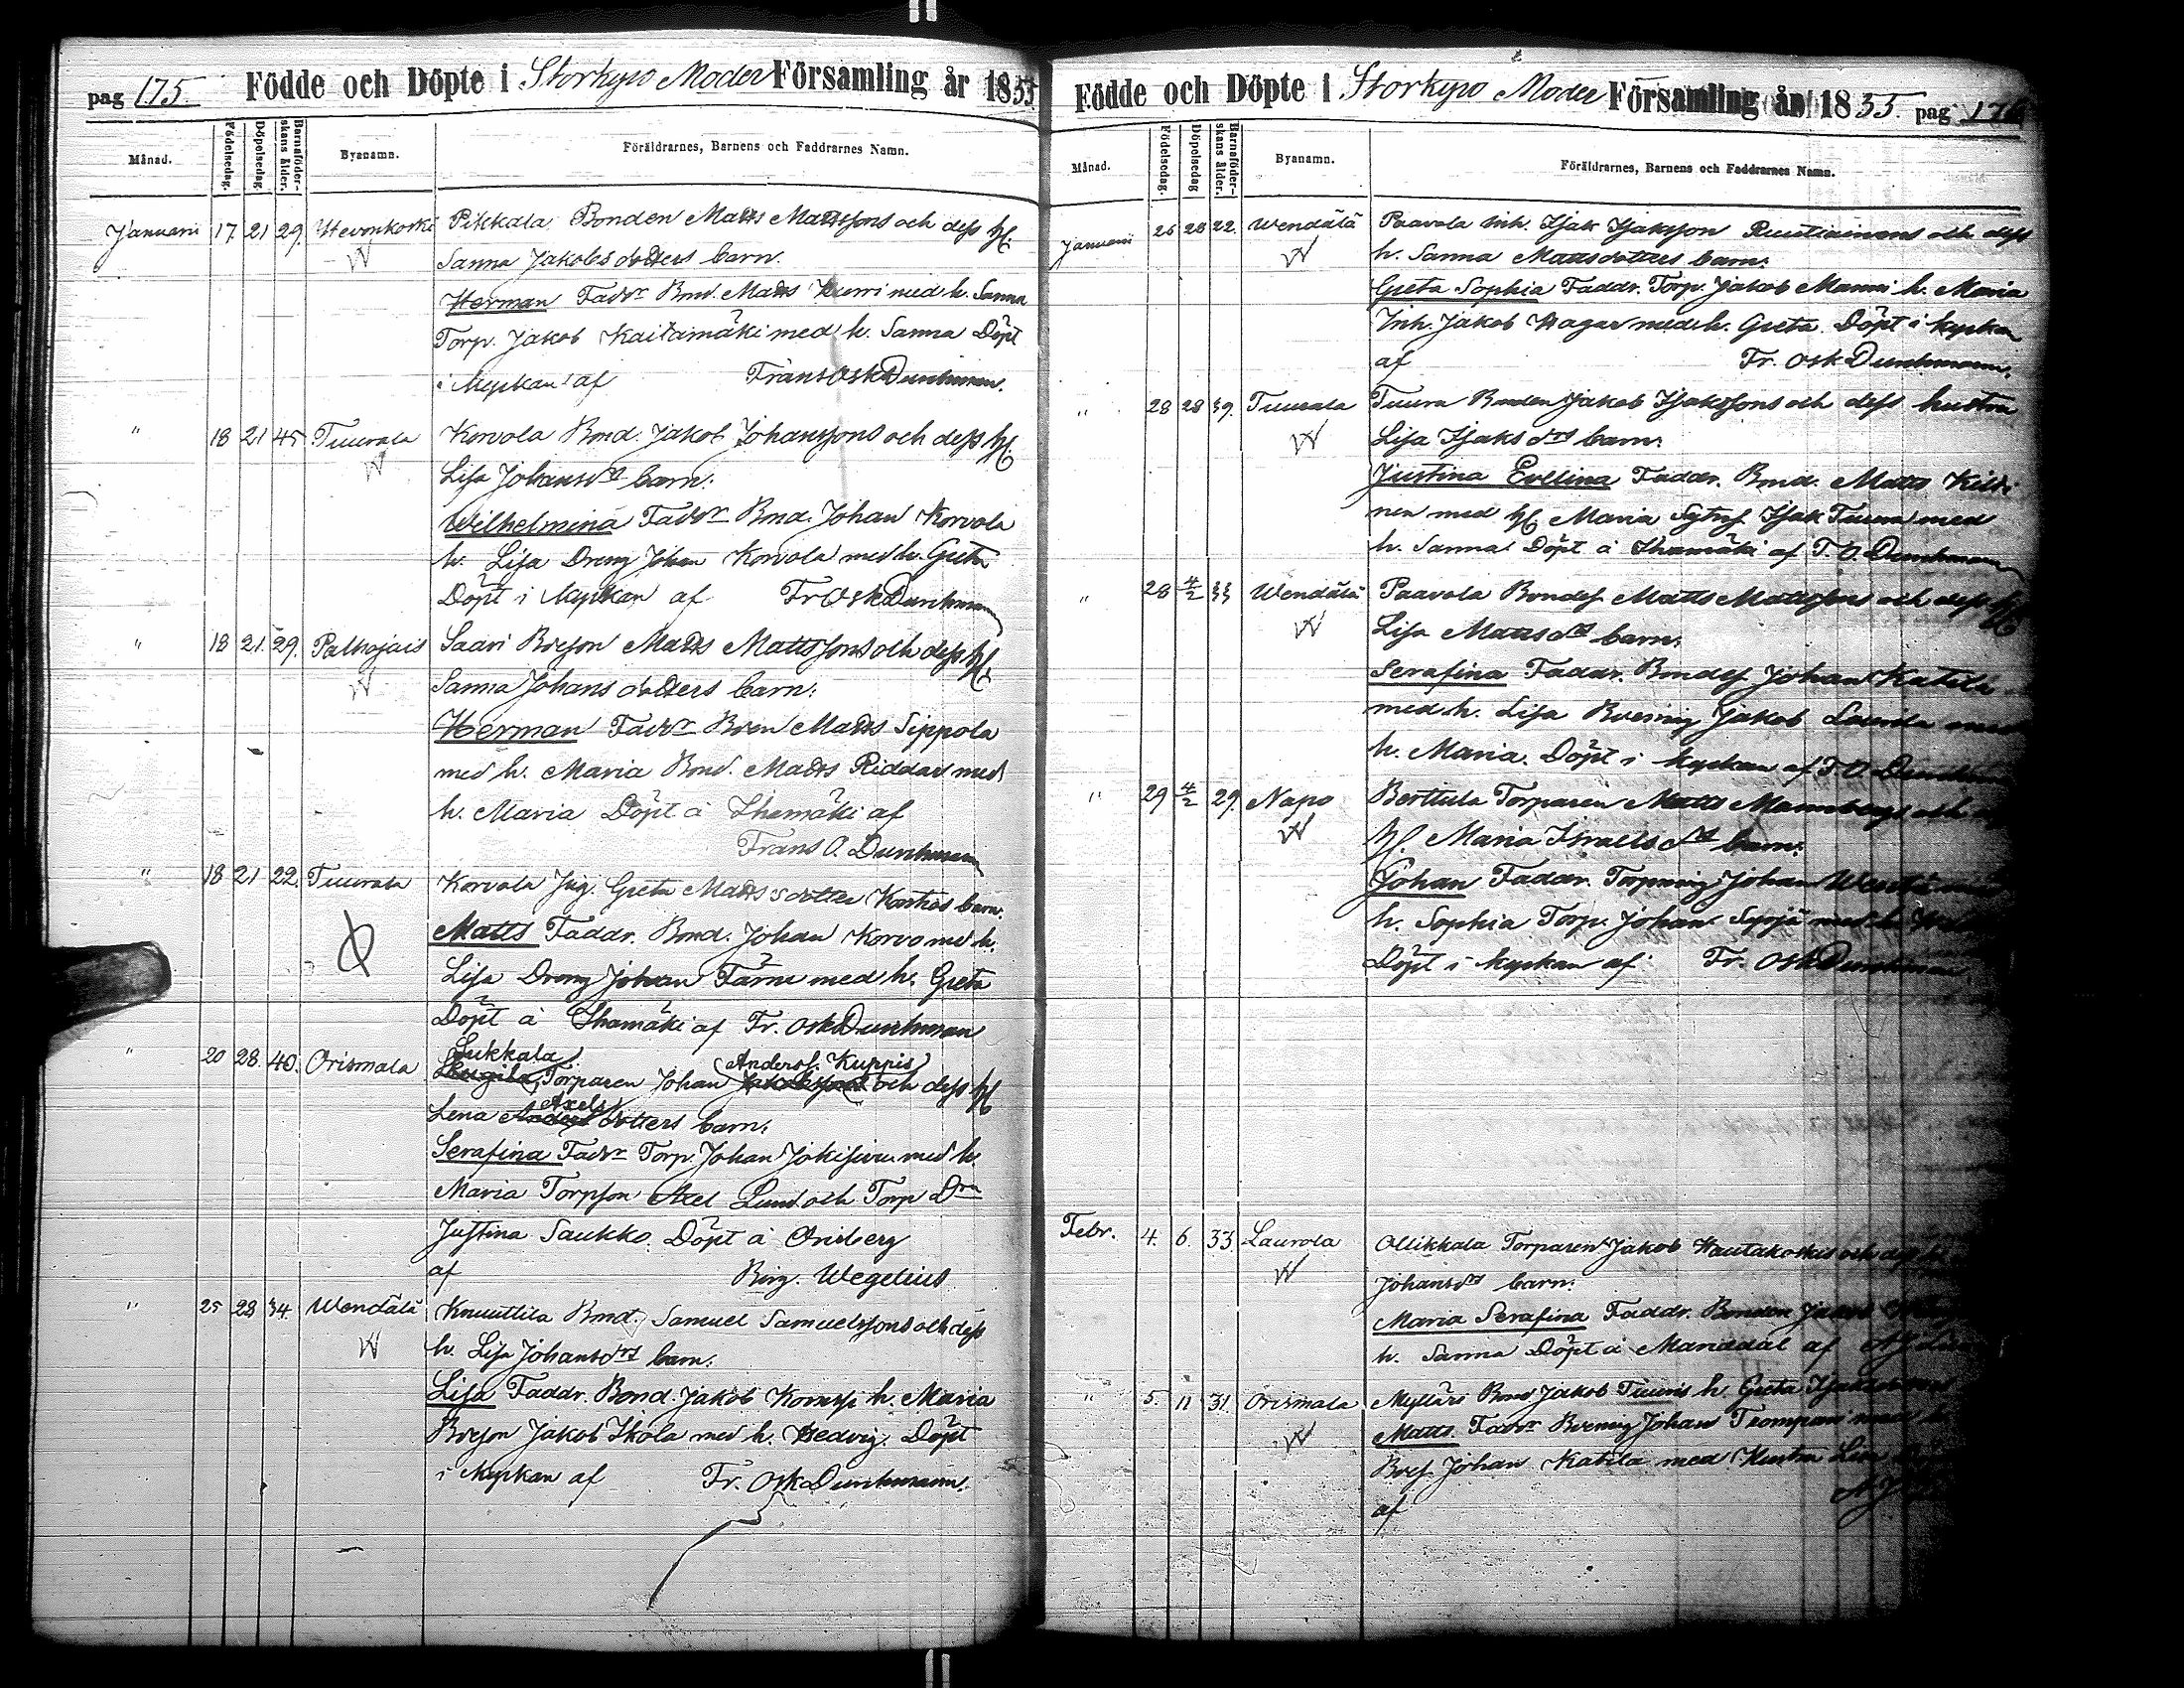 pag 175. Födde och Döpte i Storkyro Moder Församling år 1855
Månad. Födelsedag. Döpelsedag Barnaföderskans ålder. Byanamn. Föräldrarnes, Barnens och Faddrarnes Namn.
Januari 17. 21 29. Hevonkoski Pikkala Bonden Matts Mattssons och dess h.
W Sanna Jakobsdotters barn.
Herman Faddr Bond. Matts Kurri med h. Sanna
Torp. Jakob Kaitamäki med h. Sanna Döpt
i Kyrkan af Frans Osk Dunchman.
" 18 21 45. Tuurala Korvola Bond. Jakob Johanssons och dess h.
W Lisa Johansdr barn.
Wilhelmina Faddr Bond. Johan Korvola
h. Lisa Dreng Johan Korvola med h. Greta
Döpt i Kyrkan af Fr Osk Dunchman
" 18 21. 29. Palhojais Saari Matts Mattssons och dess h.
W Sanna Johansdotters barn.
Herman Faddr Matts Sippola
med h. Maria Bond. Matts Riddar med
h. Maria Döpt å Ihamäki af
Frans O. Dunchman
" 18 21 22. Tuurala Korvola Jig. Greta Mattsdotter barn.
Matts Faddr. Bond. Johan Korvo med h.
Lisa Dreng Johan med h. Greta
Döpt å Ihamäki af Fr. Osk Dunchman
Sukkala Anderss. Kuppis
" 20 28. 40. Orismala Torparen Johan Jakobssons och dess h.
Axels
Lena Anders dotters barn.
Serafina Faddr Torp. Johan Jokisivu med h.
Maria Torpson Axel Lund och Torp Drn
Justina Saukko. Döpt å Orisberg
af Birg. Wegelius
" 25 28 34. Wendälä Knuuttila Bond. Samuel Samuelssons och dess
W h. Lisa Johansdrs barn.
Lisa Faddr. Bond. Jakob h. Maria
Jakob Ikola med h. Hedvig. Döpt
i Kyrkan af Fr. Osk Dunchman.
Födde och Döpte i Storkyro Moder Församling år 1855. pag 176
Månad. Födelsedag. Döpelsedag Barnaföderskans ålder. Byanamn. Föräldrarnes, Barnens och Faddrarnes Namn.
Januari 26 28 22. Wendälä Paavola Inh. Isak Isaksson och dess
W h. Sanna Mattsdotters barn.
Greta Sophia Faddr. Torp. Jakob Manni h. Maria
Inh. Jakob Hagar med h. Greta. Döpt i kyrkan
af Fr. Osk Dunchman.
" 28 28 39. Tuurala Tuura Bonden Jakob Isakssons och dess hustru
W Lisa Isaksdrs barn.
Justina Evelina Faddr. Bond. Matts
med h. Maria Sytnf. Isak Tuura med
h. Sanna Döpt å Ihamäki af F. O. Dunchman
" 28 4/2 33 Wendälä Paavola Bondes. Matts Mattssons och dess h.
W Lisa Mattsdrs barn.
Serafina Faddr. Bondes. Johan Katila
med h. Lisa Jakob Laurila med
h. Maria. Döpt i kyrkan af F. O. Dunchman
" 29 4/2 29. Napo Berttula Torparen Matts Mannbergs och
W h. Maria Israelsdrs barn.
Johan Faddr. Torpmåg Johan
h. Sophia Torp. Johan med h.
Döpt i kyrkan af Fr. Osk Dunchman
Febr. 4. 6. 33. Laurola Ollikkala Torparen Jakob Hautakoskis och dess
W Johansdrs barn.
Maria Serafina Faddr. Bonden Jakob
h. Sanna Döpt å Manddal af
" 5. 11 31. Orismala Mylläri Bond Jakob Tuuris h. Greta
W Matts. Faddr Johan Tompuri med h.
Johan Katila med Hustru Lisa
af